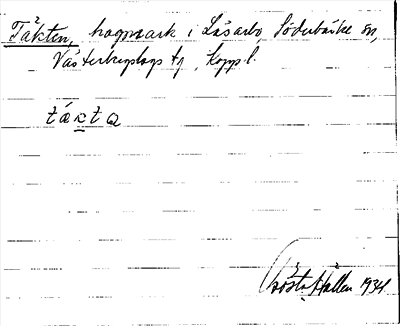 Täkten, hagmark i Läsarbo, Söderbärke sn,
Västerbergslags tg, Kopp. l.
Gösta Hallén 1934